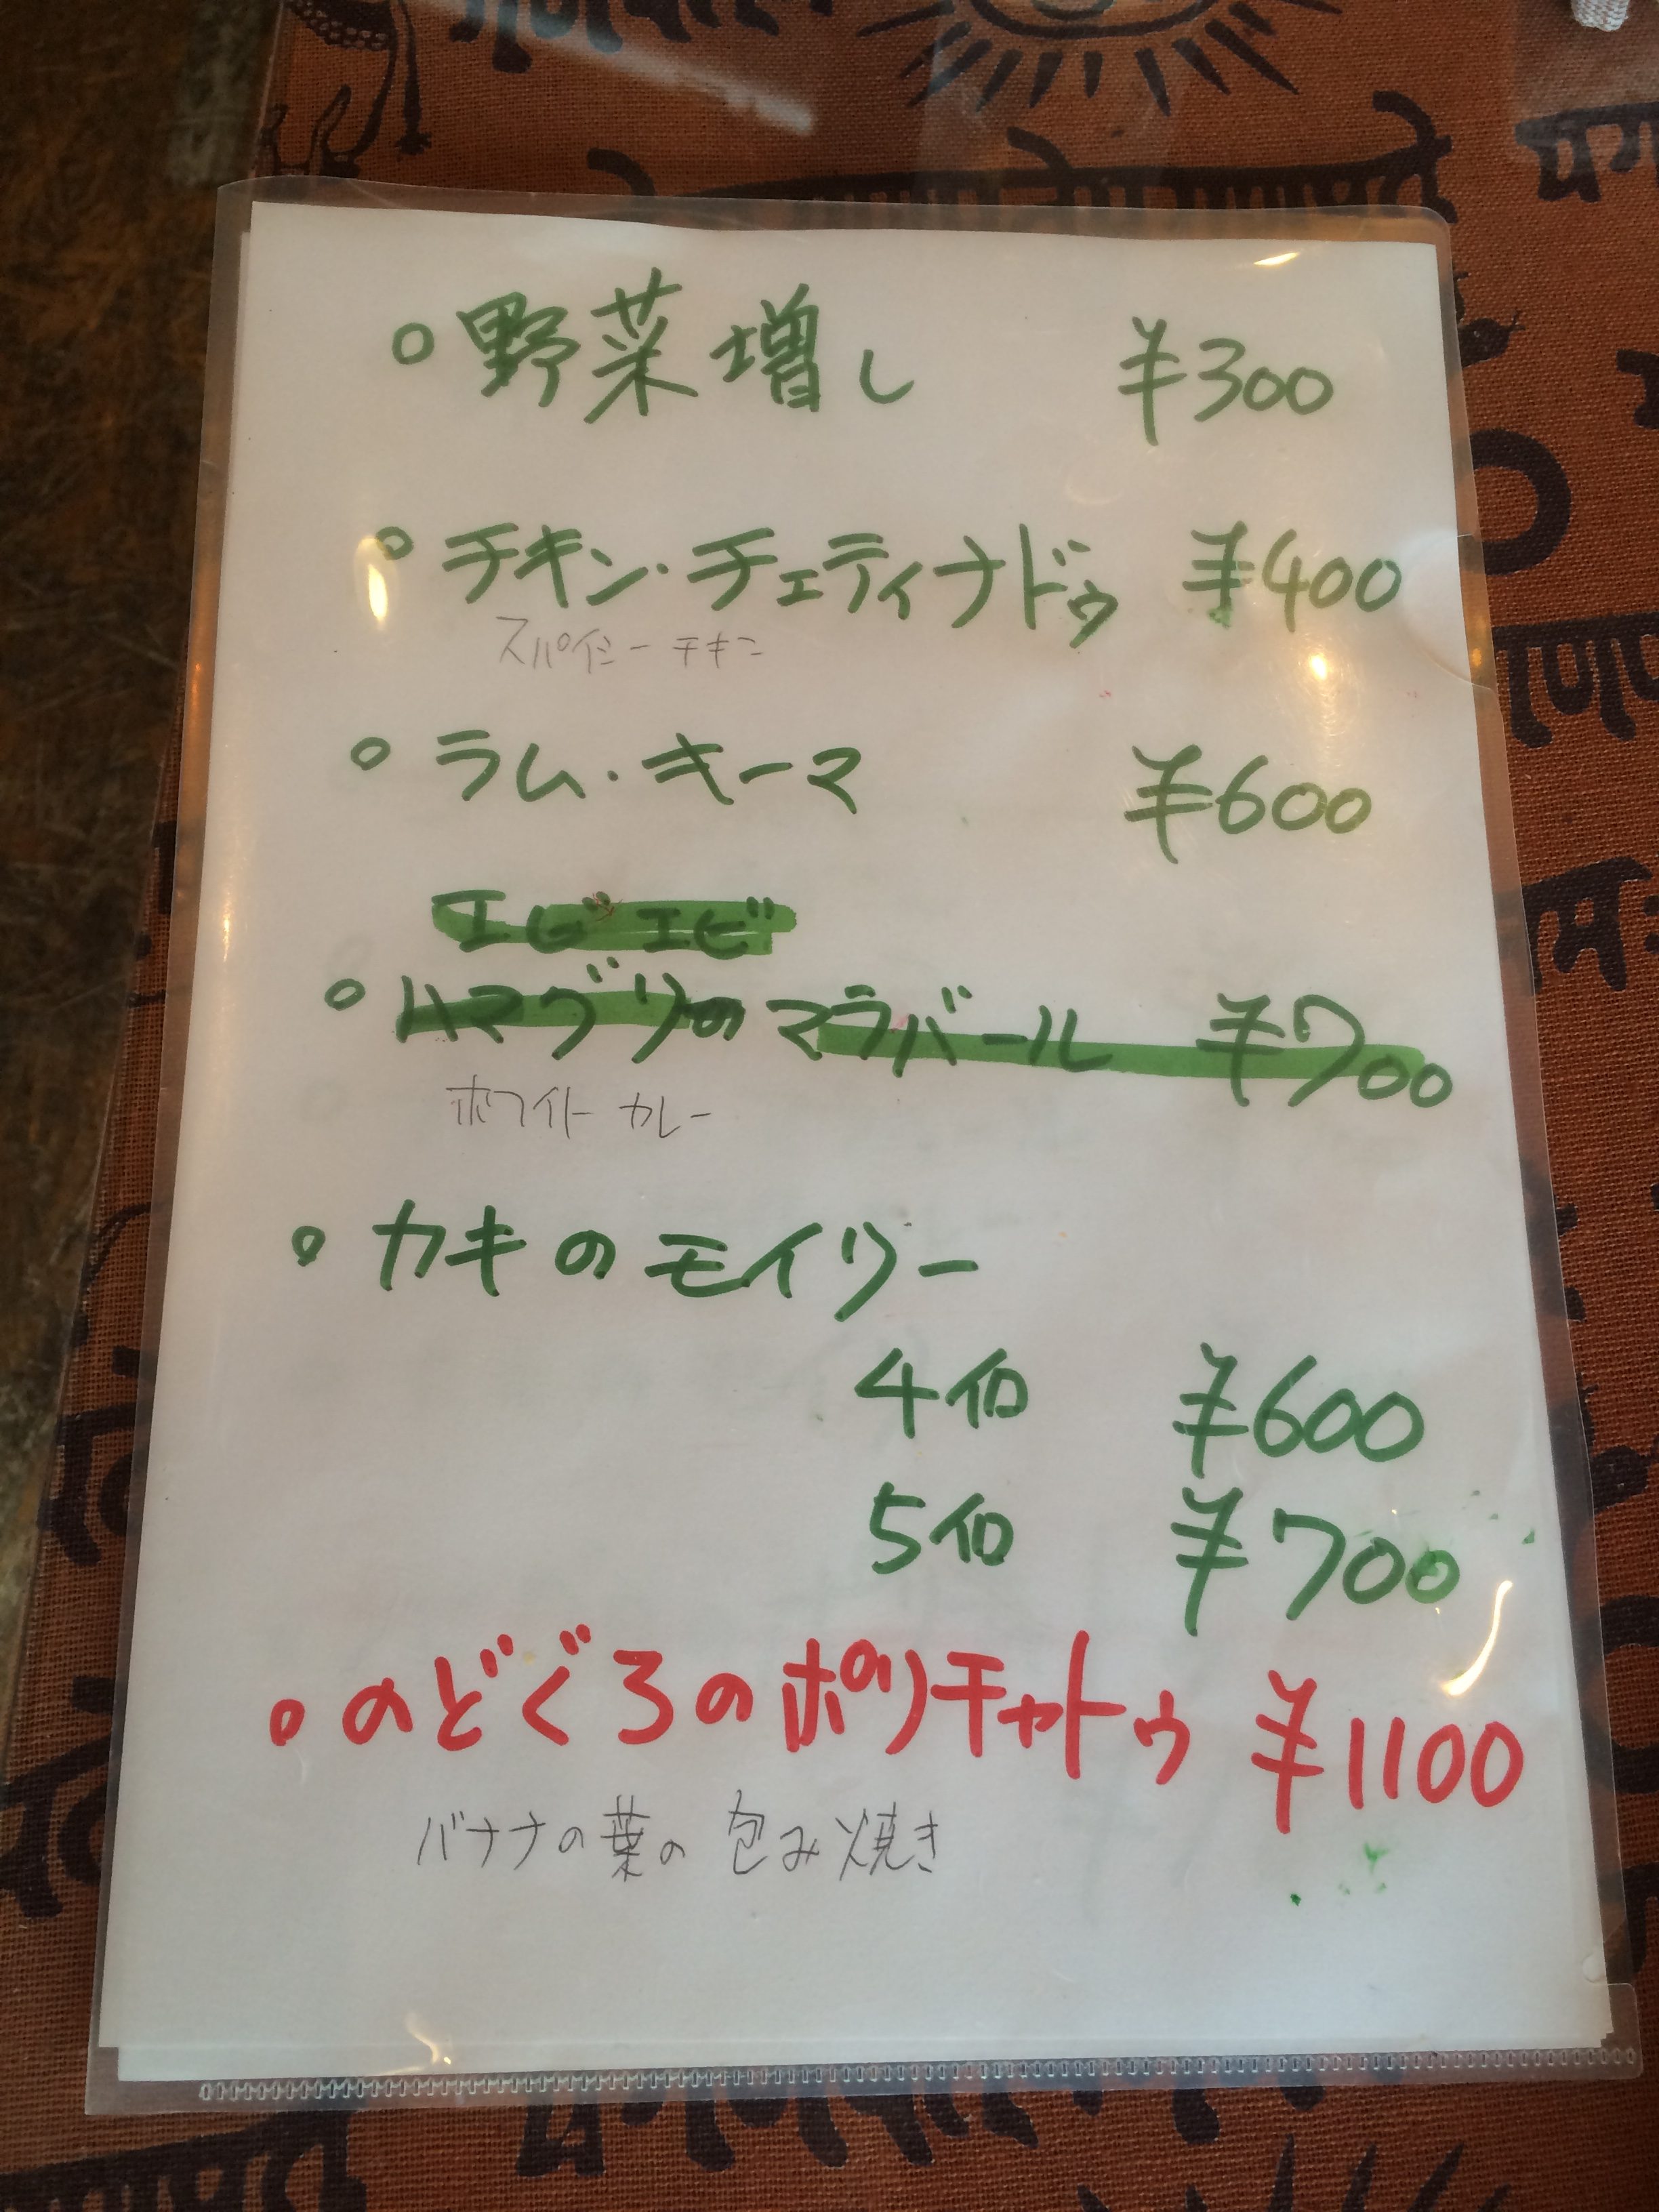 गणपत
野菜増し ¥300
チキン・チェティナドゥ ¥400
スパイシーチキン
ラム・キーマ ¥600
エビ エビ
ハマグリの マラバール ¥700
ホワイト カレー
カキのモイリー
4個 ¥600
5個 ¥700
のどぐろのポリチャトゥ ¥1100
バナナの葉の包み焼き